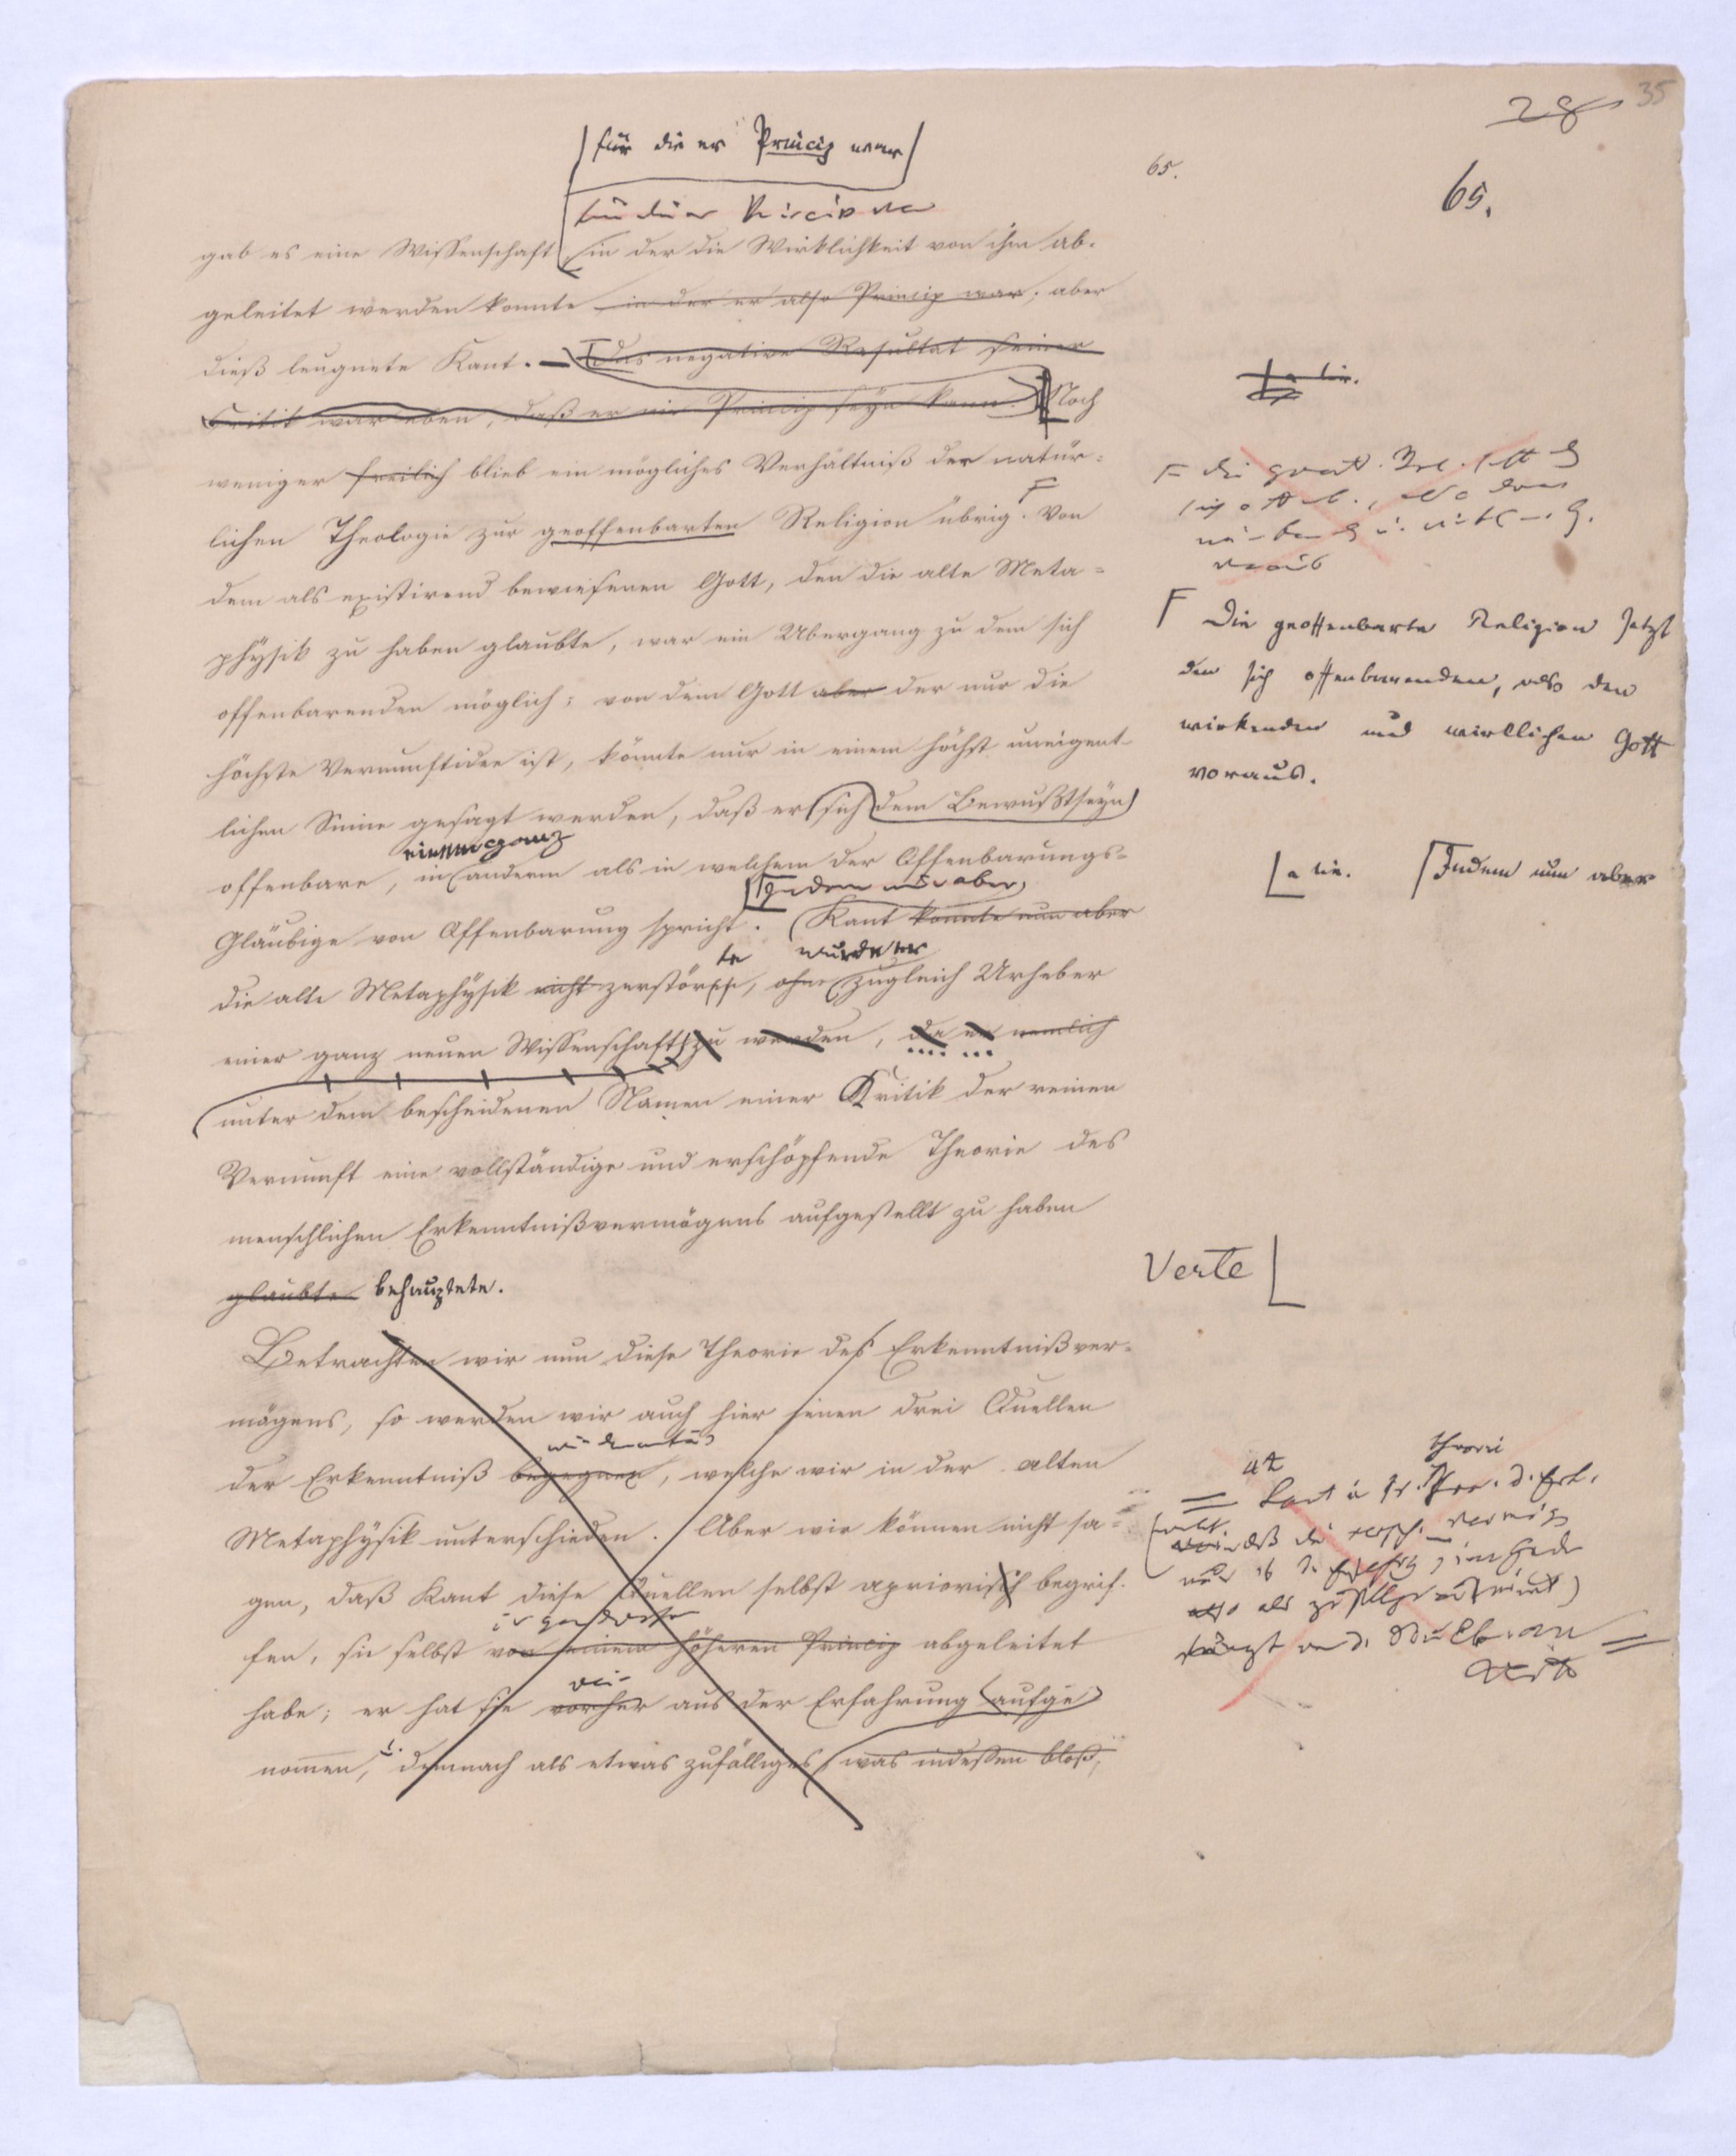 28
35
65.
65.
für die er Princip war
für die er Princip war
gab es eine Wissenschaft in der die Wirklichkeit von ihm ab-
geleitet werden konnte in der er also Princip war; aber
dieß leugnete Kant. – Das negative Resultat seiner
Critik war eben, daß er nie Princip seyn kann. Noch
weniger freilich blieb ein mögliches Verhältniß der natür-
lichen Theologie zur geoffenbarten Religion übrig. F Von
dem als existirend bewiesenen Gott, den die alte Meta-
physik zu haben glaubte, war ein Übergang zu dem sich
offenbarenden möglich; von dem Gott aber der nur die
höchste Vernunftidee ist, könnte nur in einem höchst uneigent-
lichen Sinne gesagt werden, daß er sich dem Bewußtseyn
einem ganz
offenbare, in anderm als in welchem der Offenbarungs-
Indem nun aber
Gläubige von Offenbarung spricht. Kant konnte nun aber
te wurde er
die alte Metaphysik nicht zerstören, ohne zugleich Urheber
einer ganz neuen Wissenschaft zu werden, da er nemlich
unter dem bescheidenen Namen einer Kritik der reinen
Vernunft eine vollständige und erschöpfende Theorie des
menschlichen Erkenntnißvermögens aufgestellt zu haben
glaubte behauptete.
Betrachten wir nun diese Theorie des Erkenntnißver-
mögens, so werden wir auch hier jenen drei Quellen
der Erkenntniß begegnen, welche wir in der alten
Metaphysik unterschieden. Aber wir können nicht sa-
gen, daß Kant diese Quellen selbst apriorisch begrif-
fen, sie selbst von einem höheren Princip abgeleitet
habe; er hat sie vorher aus der Erfahrung aufge
nommen, demnach als etwas zufälliges, was indessen bloß,
a lin.
F Die geoffenbarte Religion setzt
den sich offenbarenden, also den
wirkenden und wirklichen Gott
voraus.
a lin. Indem nun aber
Verte